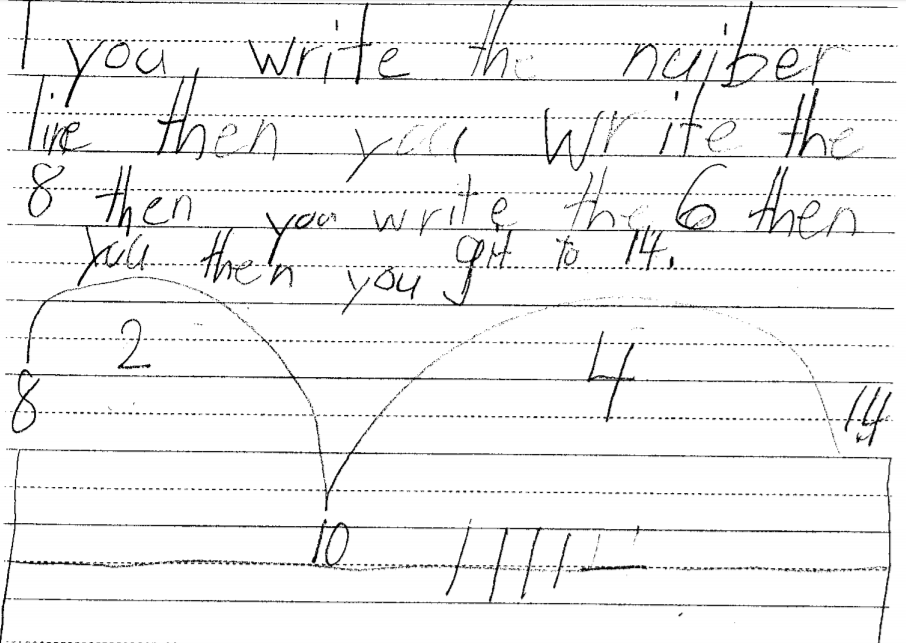 1 you write the nuiber
line then you write the
8 then you write the 6 then
you then you git to 14.
2 4
8 14
10